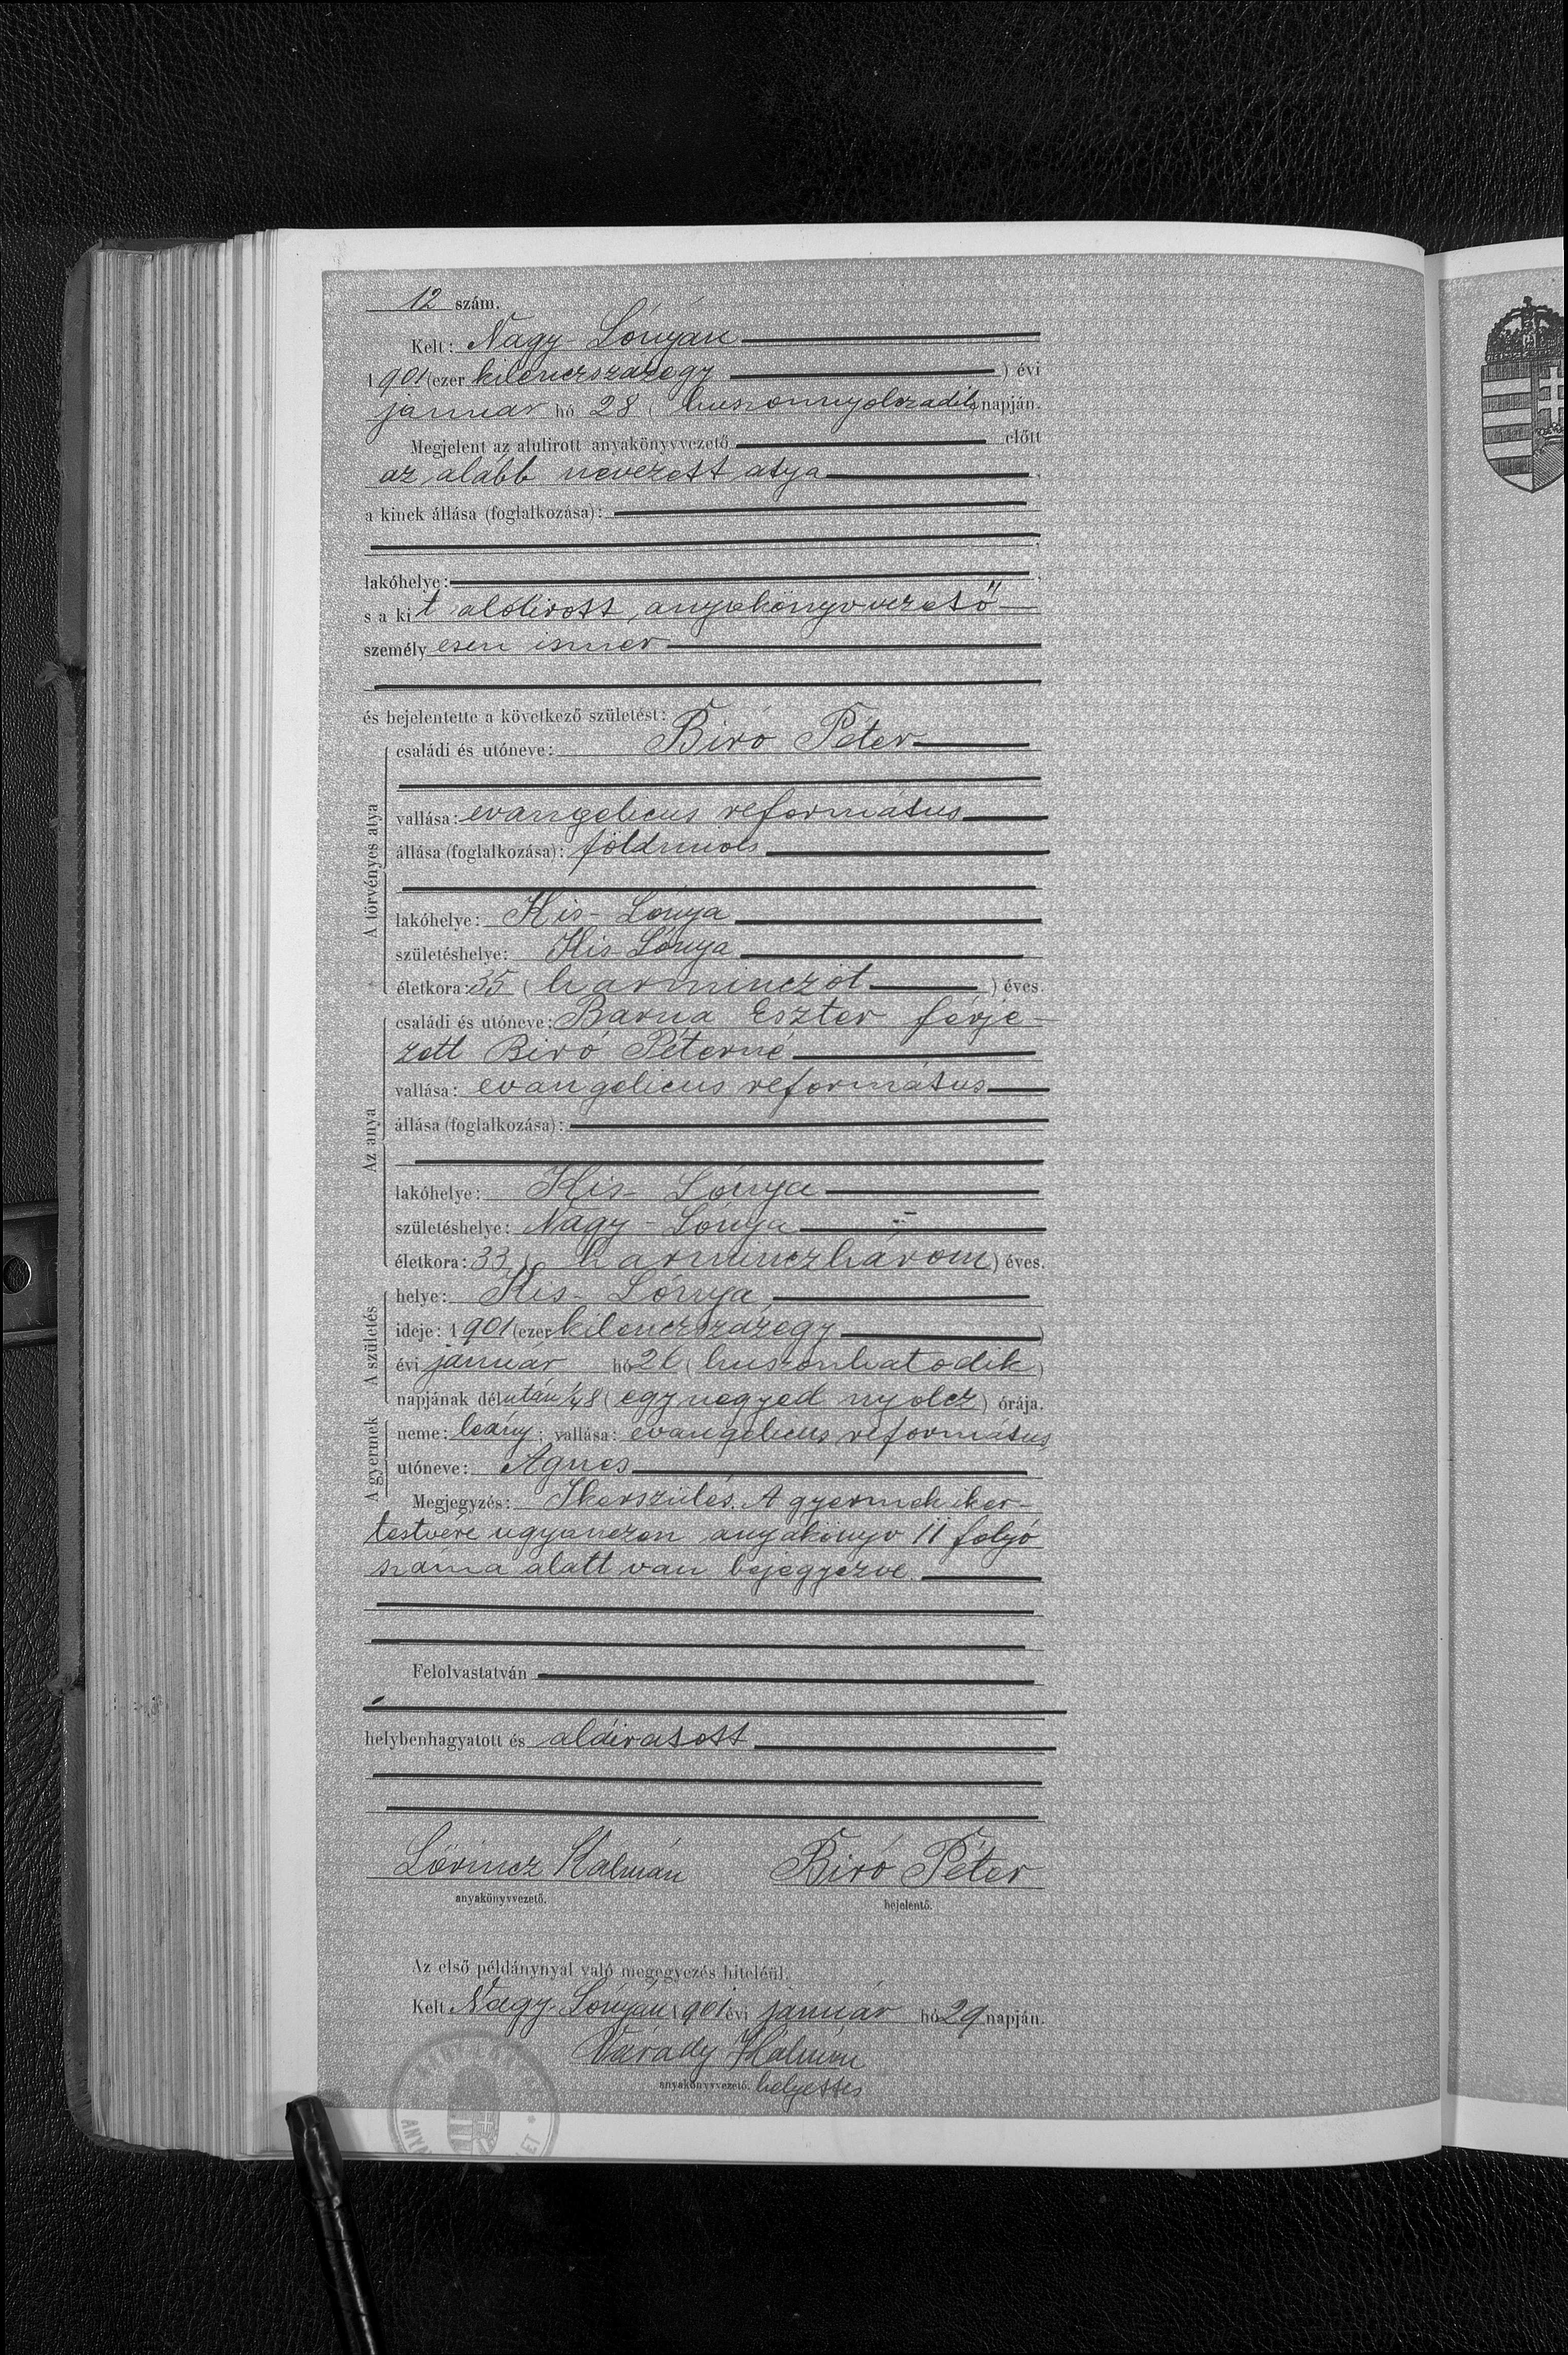 12 szám.
Kelt: Nagy-Lónyan
1901 (ezer kilenczszázegy ) évi
január hó 28 ( huszonnyolczadik) napján.
Megjelent az alulirott anyakönyvvezető előtt
az alább nevezett atya
a kinek állása (foglalkozása):
lakóhelye:
s a kit alólirott anyakönyvvezető
személyesen ismer
és bejelentette a következő születést:
A törvényes atya
családi és utóneve: Biró Péter
vallása: evangelicus református
állása (foglalkozása): földmives
lakóhelye: Kis-Lónya
születéshelye: Kis-Lónya
életkora: 35 ( harminczöt ) éves.
Az anya
családi és utóneve: Barna Eszter férje-
zett Biró Péterné
vallása: evangelicus református
állása (foglalkozása):
lakóhelye: Kis-Lónya
születéshelye: Nagy-Lónya
életkora: 33 ( harminczhárom ) éves.
A születés
helye: Kis-Lónya
ideje: 1901 (ezer kilenczszázegy )
évi január hó 26 ( huszonhatodik )
napjának délután ¼8 ( egy negyed nyolcz ) órája.
A gyermek
neme: leány; vallása: evangelicus református
utóneve: Ágnes
Megjegyzés: Ikerszülés. A gyermek iker-
testvére ugyanezen anyakönyv 11 folyó
száma alatt van bejegyezve.
Felolvastatván
helybenhagyatott és aláiratott
Lőrincz Kálmán Biró Péter
anyakönyvvezető. bejelentő.
Az első példánynyal való megegyezés hiteléül.
Kelt Nagy-Lónyán 1901 évi január hó 29 napján.
Várady Kálmán
anyakönyvvezető. helyettes